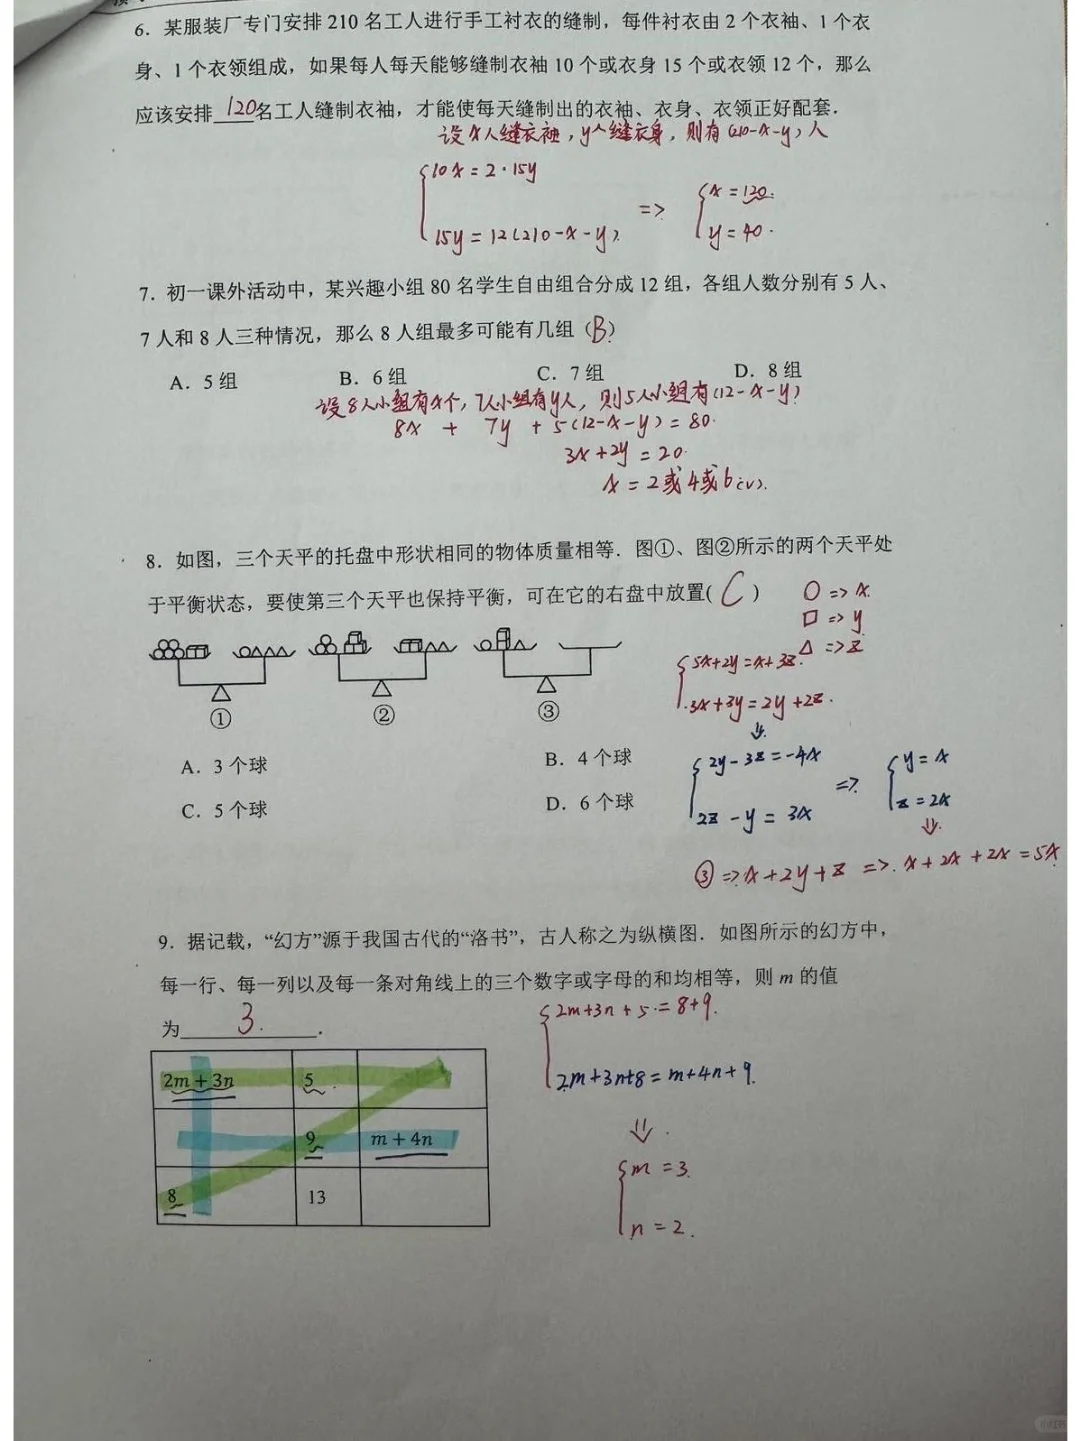 6．某服装厂专门安排 210 名工人进行手工衬衣的缝制，每件衬衣由 2 个衣袖、1 个衣
身、1 个衣领组成，如果每人每天能够缝制衣袖 10 个或衣身 15 个或衣领 12 个，那么
应该安排 120 名工人缝制衣袖，才能使每天缝制出的衣袖、衣身、衣领正好配套．
设x人缝衣袖，y个缝衣身，则有(210-x-y)人
10x = 2·15y
=> x = 120.
15y = 12(210-x-y)
y = 40.
7．初一课外活动中，某兴趣小组 80 名学生自由组合分成 12 组，各组人数分别有 5 人、
7 人和 8 人三种情况，那么 8 人组最多可能有几组（B）
A．5 组 B．6 组 C．7 组 D．8 组
设8人小组有x个，7人小组有y人，则5人小组有(12-x-y)
8x + 7y + 5(12-x-y) = 80.
3x+2y = 20.
x = 2或4或6(√).
8．如图，三个天平的托盘中形状相同的物体质量相等．图①、图②所示的两个天平处
于平衡状态，要使第三个天平也保持平衡，可在它的右盘中放置( C )
○ => x.
□ => y
△ => z
5x+2y = x+3z.
3x+3y = 2y+2z.
① ② ③
A．3 个球 B．4 个球
C．5 个球 D．6 个球
2y-3z = -4x
=> y = x
2z-y = 3x
z = 2x
③ => x+2y+z => x+2x+2x = 5x
9．据记载，“幻方”源于我国古代的“洛书”，古人称之为纵横图．如图所示的幻方中，
每一行、每一列以及每一条对角线上的三个数字或字母的和均相等，则 m 的值
为 3.．
2m+3n+5 = 8+9.
2m+3n+8 = m+4n+9.
m = 3.
n = 2.
2m + 3n 5
9 m + 4n
8 13